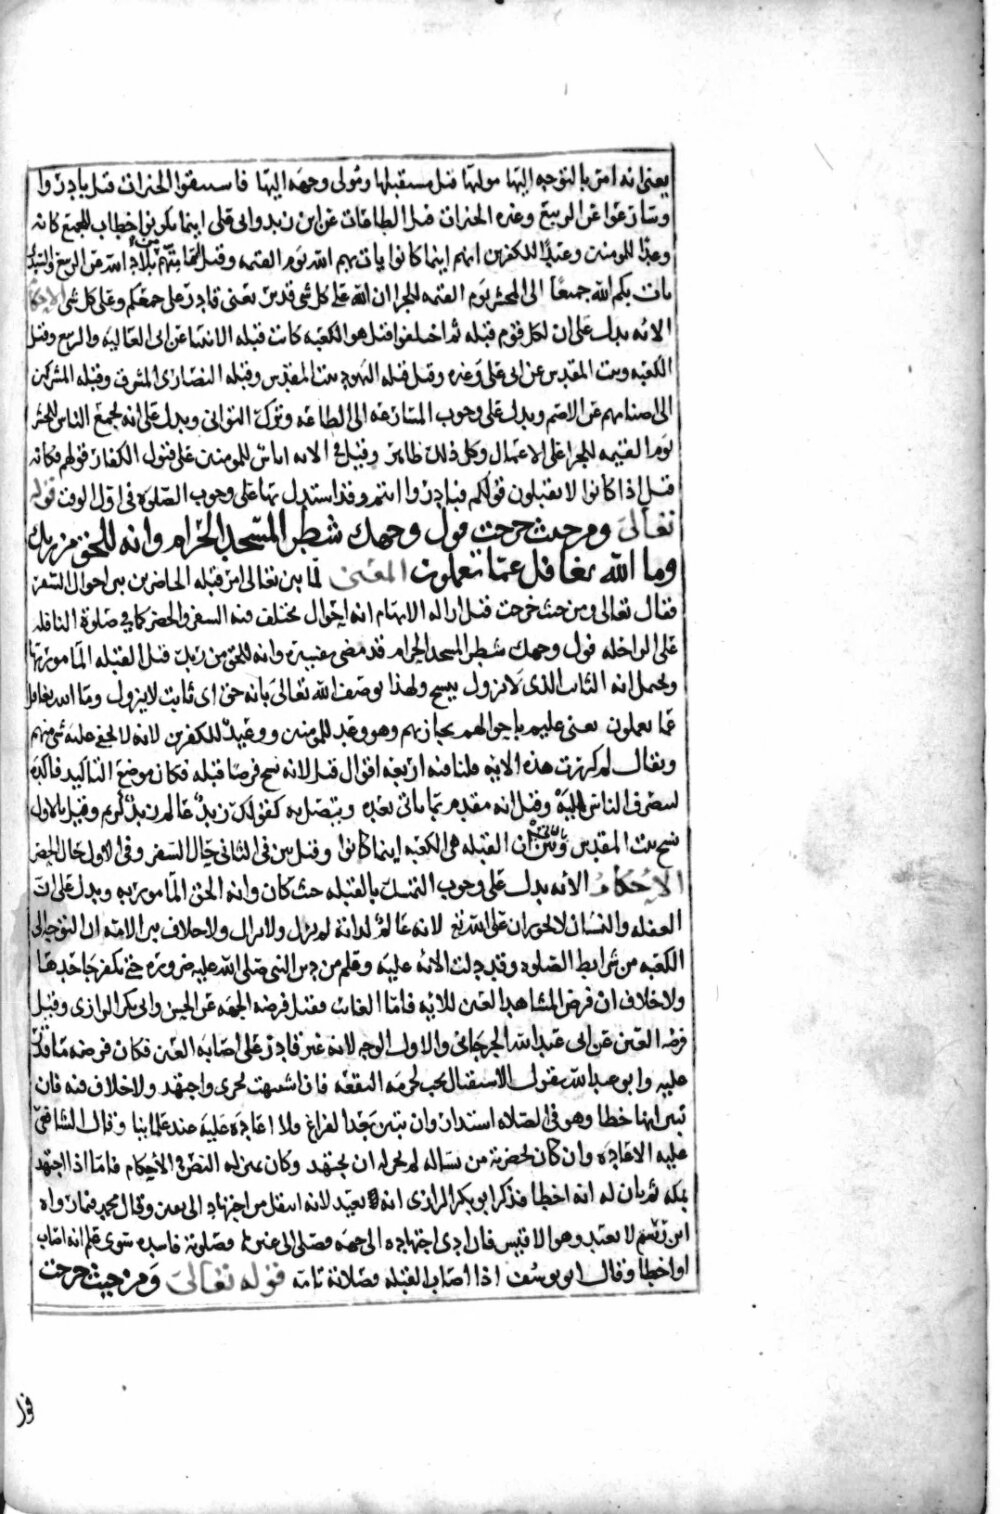 يعني انه امر بالتوجه اليها موليها قيل مستقبلها ومولى وجهه اليها فاستبقوا الخيرات قيل بادروا
وسارعوا عن الربيع وغيره الخيرات قيل الطاعات عن ابن زيد وابي علي اينما تكونوا خطاب للجميع كانه
وعدا للمومنين وعيدا للكفرين انهم اينما كانوا يات بهم الله يوم القيمه وقيل اينما متم من بلاد الله عن الربيع والسدي
يات بكم الله جميعا الى المحشر يوم القيمه للجزا ان الله على كل شي قدير يعني قادر على جمعكم وعلى كل شي الاحكام
الايه يدل على ان لكل قوم قبله ثم اختلفوا قيل هو الكعبه كانت قبله الانبيا عن ابي العاليه والربيع وقيل
الكعبه وبيت المقدس عن ابي علي وغيره وقيل قبله اليهود بيت المقدس وقبله النصارى المشرق وقبله المشركين
الى اصنامهم عن الاصم ويدل على وجوب المسارعه الى الطاعه وترك التواني ويدل على انه يجمع الناس للحشر
يوم القيمه للجزا على الاعمال وكل ذلك ظاهر وقيل في الايه اياس للمومنين على قبول الكفار قولهم فكانه
قيل اذا كانوا لا يقبلون قولكم فبادروا انتم وقد استدل بها على وجوب الصلوة في اول الوقت قوله
تعالى ومن حيث خرجت فول وجهك شطر المسجد الحرام وانه للحق من ربك
وما الله بغافل عما تعملون المعنى لما بين تعالى امر قبله الحاضرين بين احوال السفر
فقال تعالى ومن حيث خرجت قيل ازاله الابهام انه احوال تختلف فيه السفر والحضر كما في صلوة النافله
على الراحله فول وجهك شطر المسجد الحرام قد مضى تفسيره وانه للحق من ربك قيل القبله المامور بها
ويحتمل انه الثابت الذي لا يزول بنسخ ولهذا يوصف الله تعالى بانه حق اي ثابت لا يزول وما الله بغافل
عما تعملون يعني عليم باحوالهم يجازيهم وهو وعد للمومنين ووعيد للكفرين لانه لا يخفى عليه شي منهم
ويقال لم كررت هذه الايه قلنا فيه اربعه اقوال قيل لانه نسخ فرضا قبله فكان موضع التاكيد فاكده
لينصرف الناس اليه وقيل انه مقدم لما ياتي بعده ويتصل به كقولك زيد عالم زيد كريم وقيل بالاول
نسخ بيت المقدس وبالثاني بين ان القبله هي الكعبه اينما كانوا وقيل بين في الثاني حال السفر وفي الاول حال الحضر
الاحكام الايه يدل على وجوب التمسك بالقبله حيث كان وانه الحق المامور به ويدل على ان
الغفله والنسيان لا يجوزان على الله تع لانه عالم لذاته لم يزل ولا يزال ولا خلاف بين الامه ان التوجه الى
الكعبه من شرايط الصلوه وقد دلت الايه عليه وعلم من دين النبي صلى الله عليه ضرورة حتى يكفر جاحدها
ولا خلاف ان فرض المشاهد العين للايه فاما الغائب فقيل فرضه الجهه عن الحسن وابي بكر الرازي وقيل
فرضه العين عن ابي عبد الله الجرجاني والاول الوجه لانه غير قادر على اصابه العين فكان فرضه ما قدر
عليه وابو عبد الله يقول الاستقبال يجب لحرمه البقعه فان اشتبهت تحرى واجتهد ولا خلاف فيه فان
تبين انها خطا وهو في الصلاه استدار وان تبين بعد الفراغ ولا اعادة عليه عند علمائنا وقال الشافعي
عليه الاعادة وان كان بحضرته من يساله لم يجز له ان يجتهد وكان بمنزله النص في الاحكام فاما اذا اجتهد
بمكه ثم بان له انه اخطا فذكر ابو بكر الرازي انه يعيد لانه انتقل من اجتهاد الى يقين وقال محمد فيما رواه
ابن رستم لا يعيد وهو الاقيس فان ادى اجتهاده الى جهه وصلى الى غيرها فصلوته فاسده سوى علم انه اصاب
او اخطا وقال ابو يوسف اذا اصاب القبله فصلاته تامه قوله تعالى ومن حيث خرجت
فول